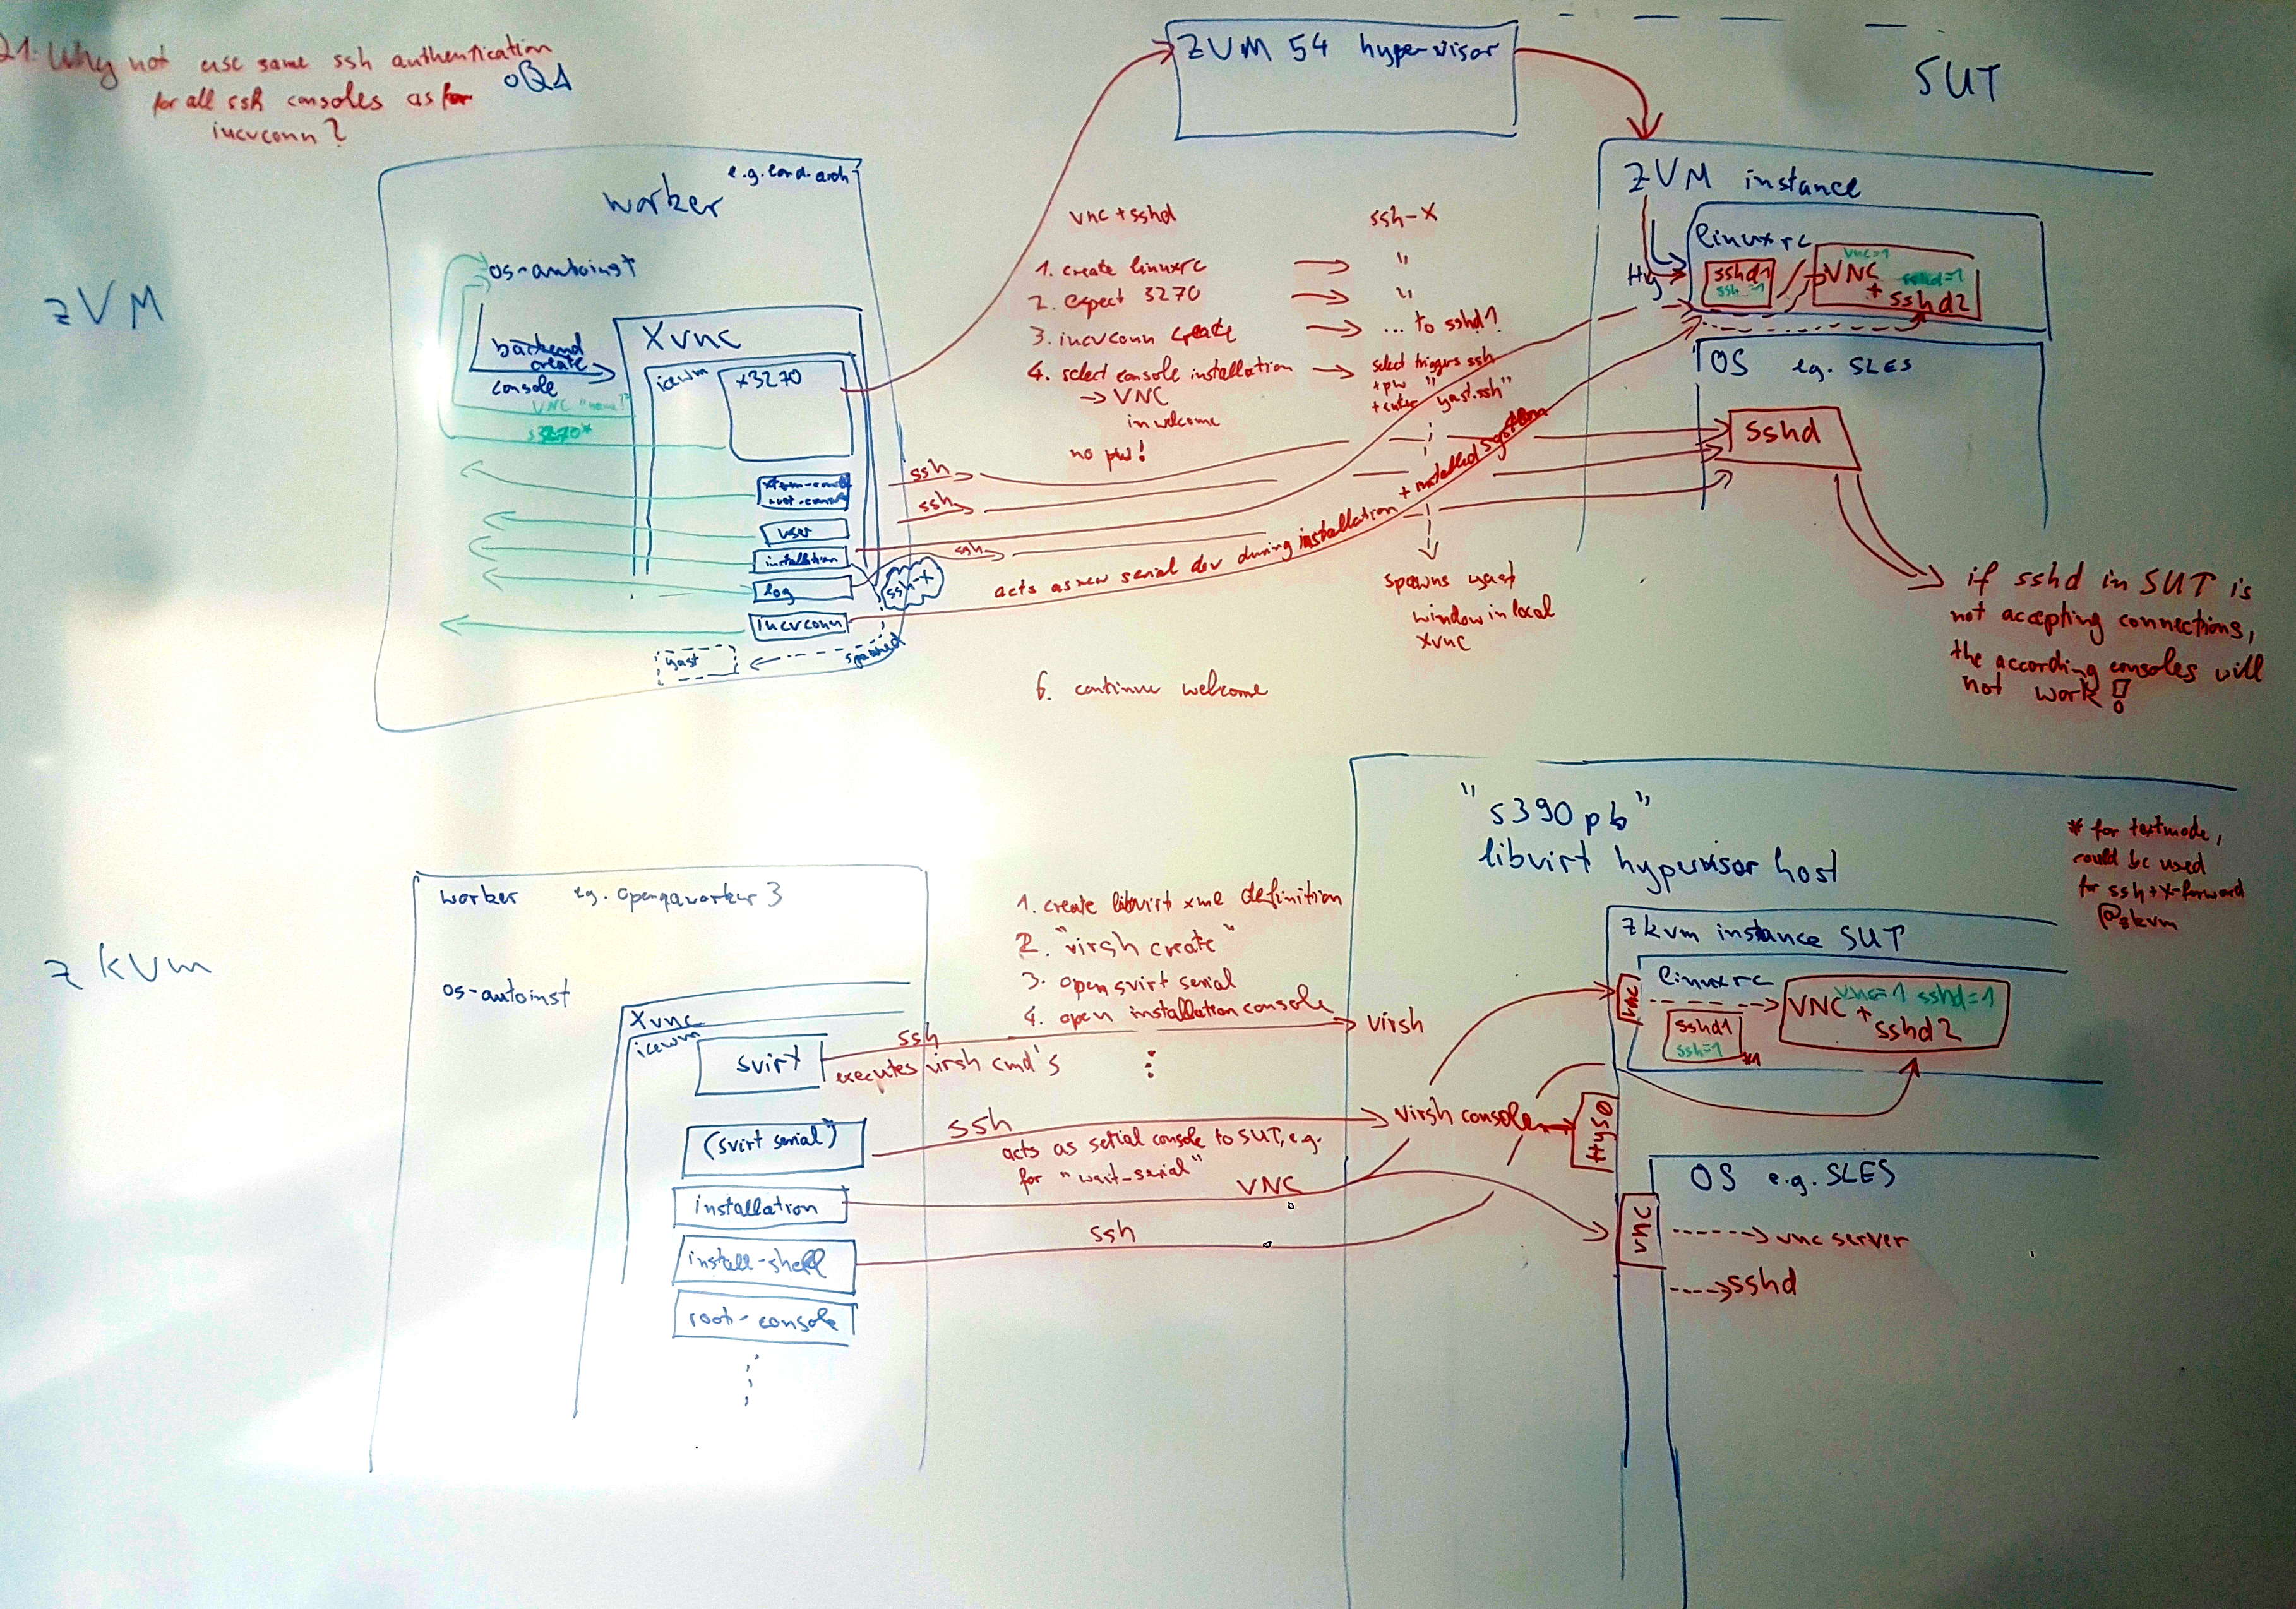 Q1. Why not use same ssh authentication
for all ssh consoles as for
iucvconn?
oQA
ZVM 54 hypervisor
SUT
zVM
worker
os-autoinst
backend
create
console
VNC
s3270*
Xvnc
icewm
x3270
root-console
user
installation
log
iucvconn
yast
spawned
ssh-X
ssh
ssh
ssh
acts as new serial dev during installation + installed system
vnc + sshd
1. create linuxrc
2. expect 3270
3. iucvconn create
4. select console installation
→ VNC
in welcome
no pw!
6. continue welcome
ssh-X
"
"
... to sshd1
select triggers ssh
+ pw "
+ enter "yast.ssh"
spawns yast
window in local
Xvnc
ZVM instance
linuxrc
sshd1
VNC
vnc=1
+
sshd=1
sshd2
OS e.g. SLES
sshd
if sshd in SUT is
not accepting connections,
the according consoles will
not work!
zKVM
worker eg. openqaworker3
os-autoinst
Xvnc
icewm
svirt
(svirt serial)
installation
install-shell
root-console
1. create libvirt xml definition
2. "virsh create"
3. open svirt serial
4. open installation console
ssh
executes virsh cmd's
ssh
acts as serial console to SUT, e.g.
for "wait-serial"
VNC
ssh
"s390pb"
libvirt hypervisor host
virsh
virsh console
ttys0
zkvm instance SUT
linuxrc
vnc
sshd1
ssh=1
*1
VNC
vnc=1 sshd=1
+
sshd2
OS e.g. SLES
vnc
vnc server
sshd
* for textmode,
could be used
for ssh+X-forward
@zkvm